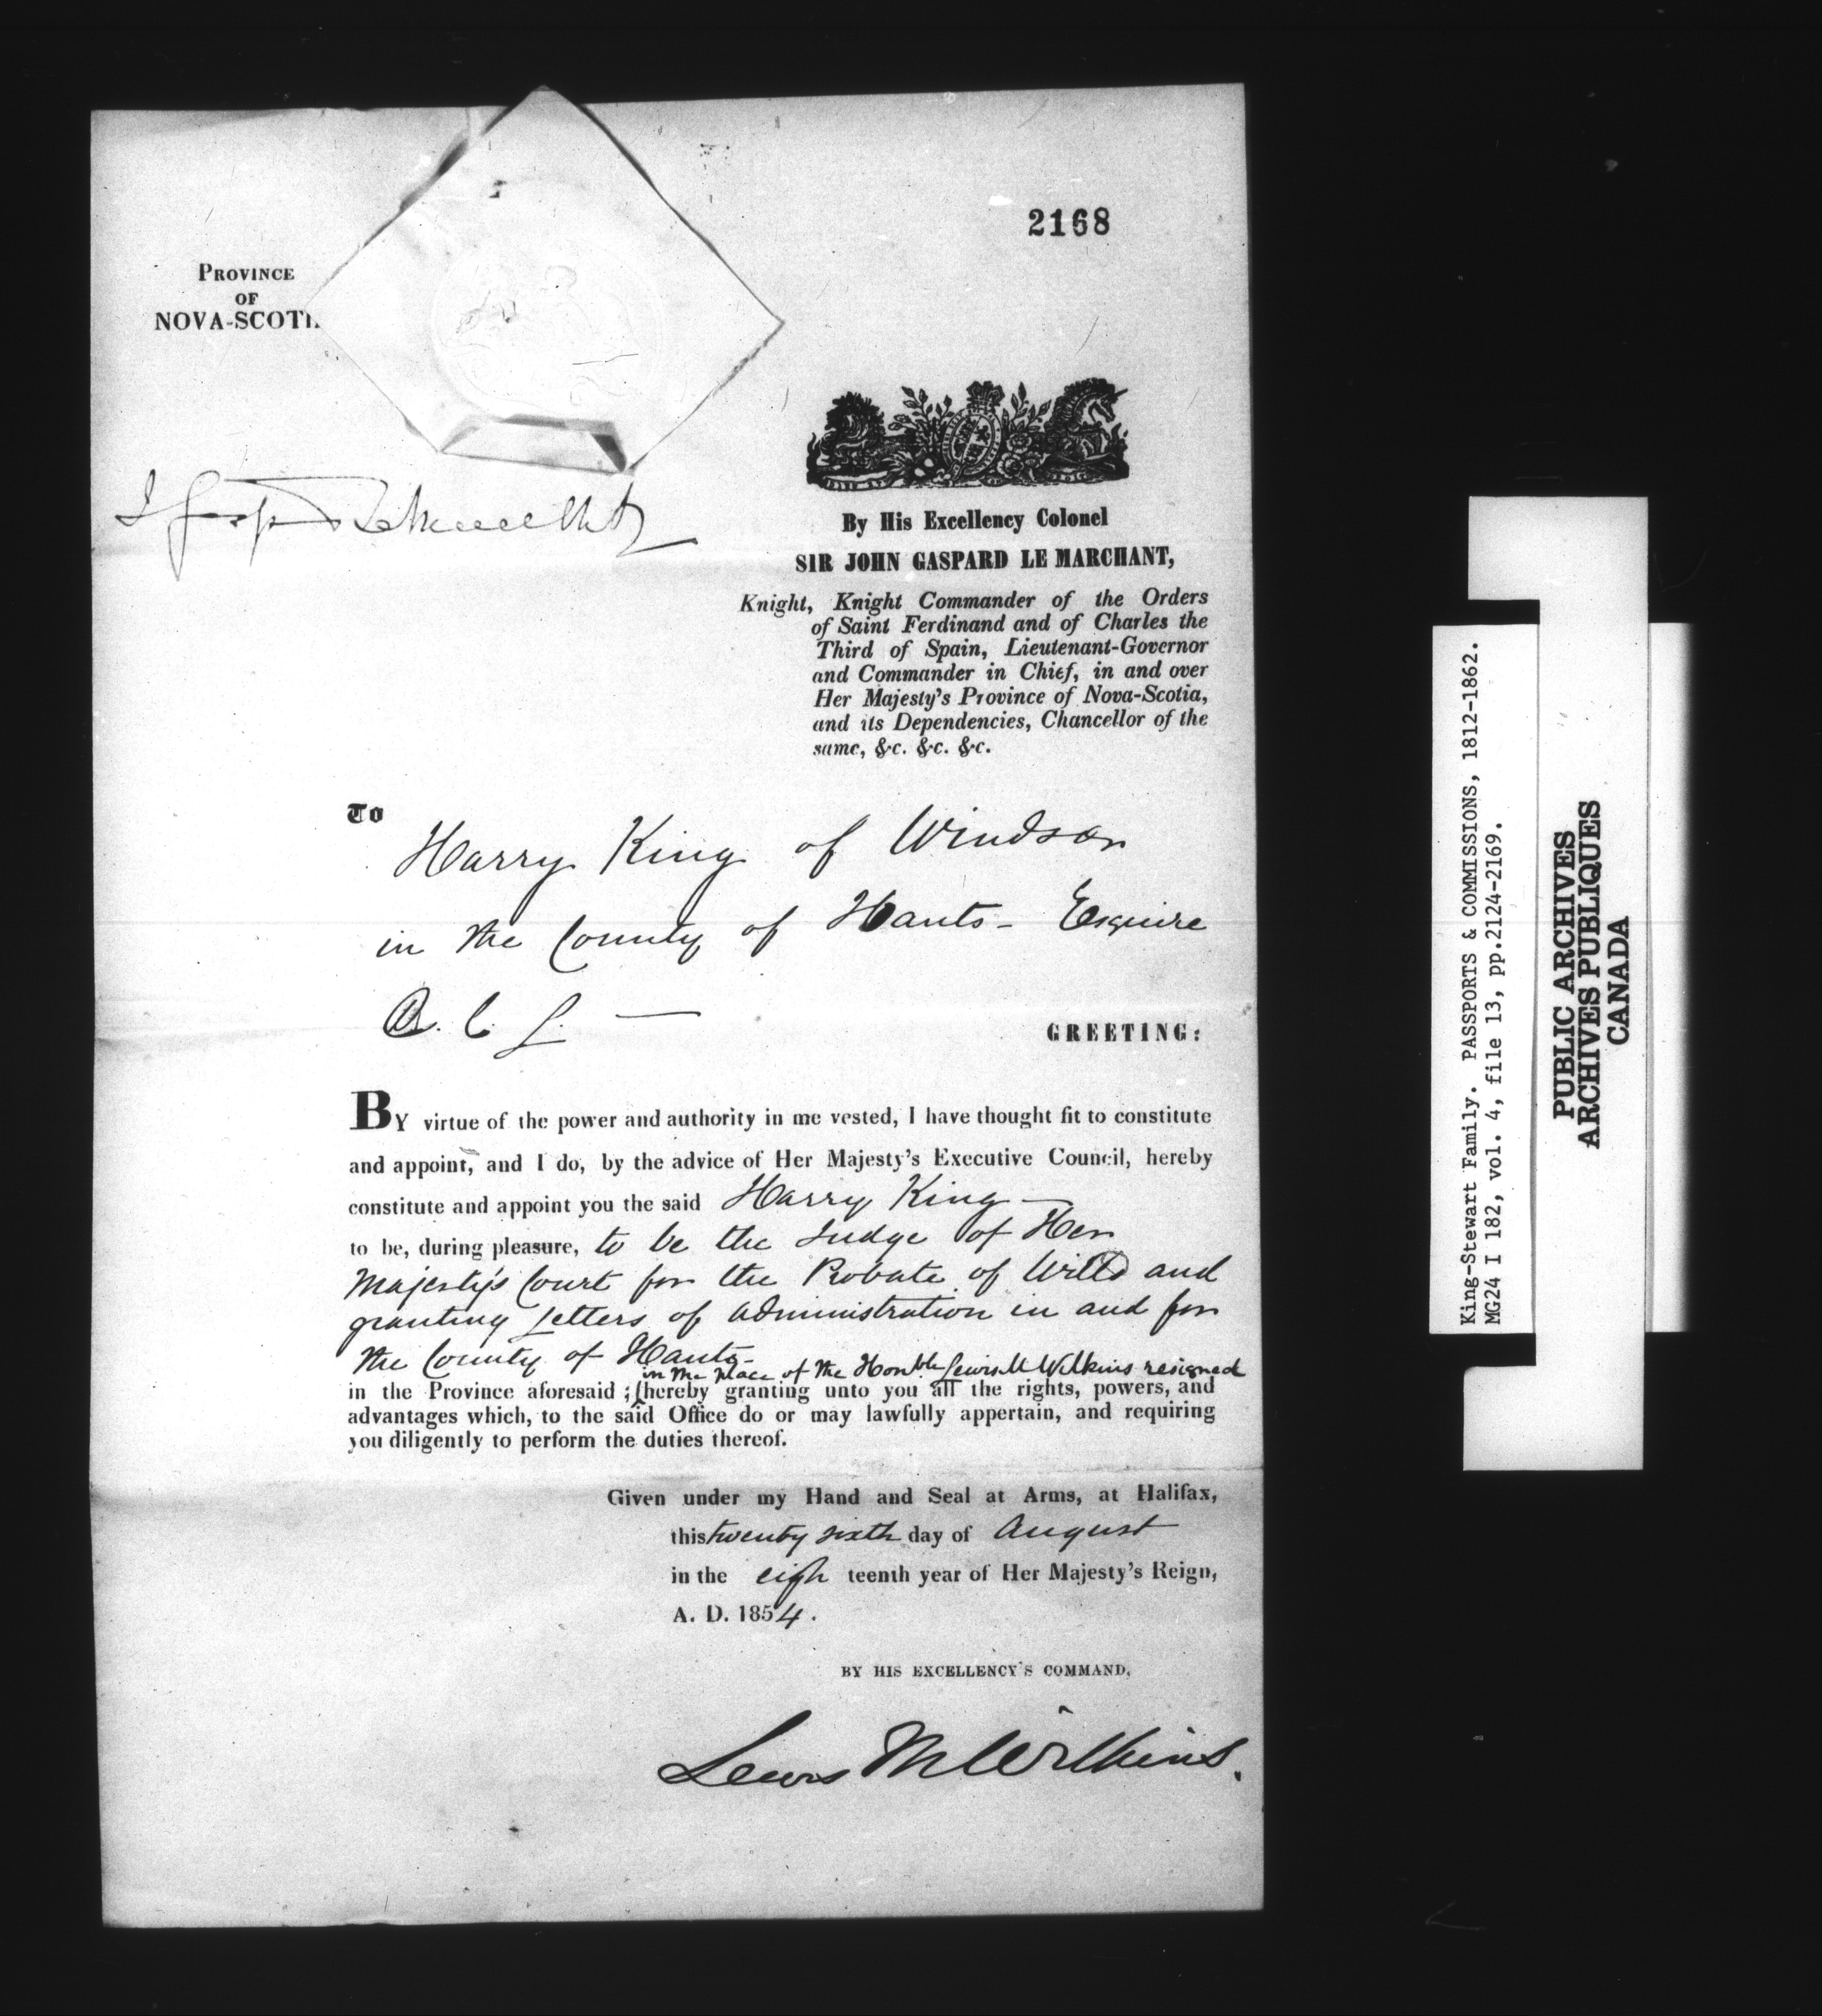 2168
PROVINCE
OF
NOVA-SCOTI
By His Excellency Colonel
SIR JOHN GASPARD LE MARCHANT,
Knight, Knight Commander of the Orders
of Saint Ferdinand and of Charles the
Third of Spain, Lieutenant-Governor
and Commander in Chief, in and over
Her Majesty's Province of Nova-Scotia,
and its Dependencies, Chancellor of the
same, &c. &c. &c.
To
Harry King of Windsor
in the County of Hants - Esquire
C. L. —
GREETING:
BY virtue of the power and authority in me vested, I have thought fit to constitute
and appoint, and I do, by the advice of Her Majesty's Executive Council, hereby
constitute and appoint you the said Harry King —
to be, during pleasure, to be the Judge of Her
Majesty's Court for the Probate of Wills and
granting Letters of Administration in and for
the County of Hants -
in the place of the Honble Lewis M Wilkins resigned
in the Province aforesaid ; hereby granting unto you all the rights, powers, and
advantages which, to the said Office do or may lawfully appertain, and requiring
you diligently to perform the duties thereof.
Given under my Hand and Seal at Arms, at Halifax,
this twenty sixth day of August
in the eigh teenth year of Her Majesty's Reign,
A. D. 1854.
BY HIS EXCELLENCY'S COMMAND,
Lewis M Wilkins.
King-Stewart Family. PASSPORTS & COMMISSIONS, 1812-1862.
MG24 I 182, vol. 4, file 13, pp.2124-2169.
PUBLIC ARCHIVES
ARCHIVES PUBLIQUES
CANADA